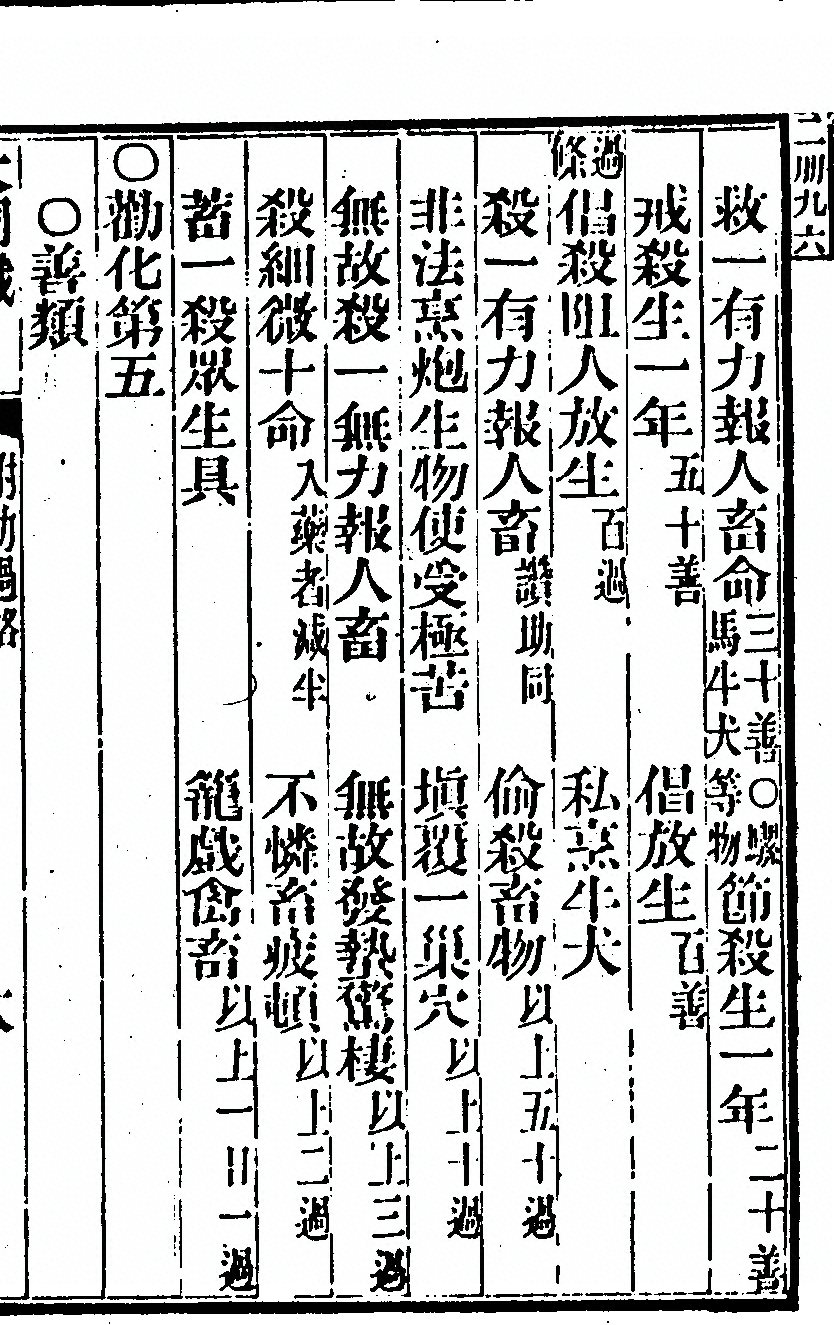 救一有力報人畜命三十善○騾馬牛犬等物節殺生一年二十善
戒殺生一年五十善 倡放生百善
過條
倡殺阻人放生百過 私烹牛犬
殺一有力報人畜讚助同 偷殺畜物以上五十過
非法烹炮生物使受極苦 塡覆一巢穴以上十過
無故殺一無力報人畜 無故發蟄驚棲以上三過
殺細微十命入藥者減半 不憐畜疲頓以上二過
蓄一殺眾生具 籠戲禽畜以上一日一過
○勸化第五
○善類